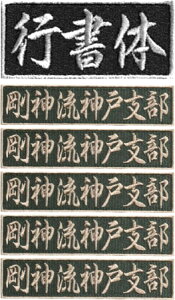 行書体
剛神流神戸支部
剛神流神戸支部
剛神流神戸支部
剛神流神戸支部
剛神流神戸支部